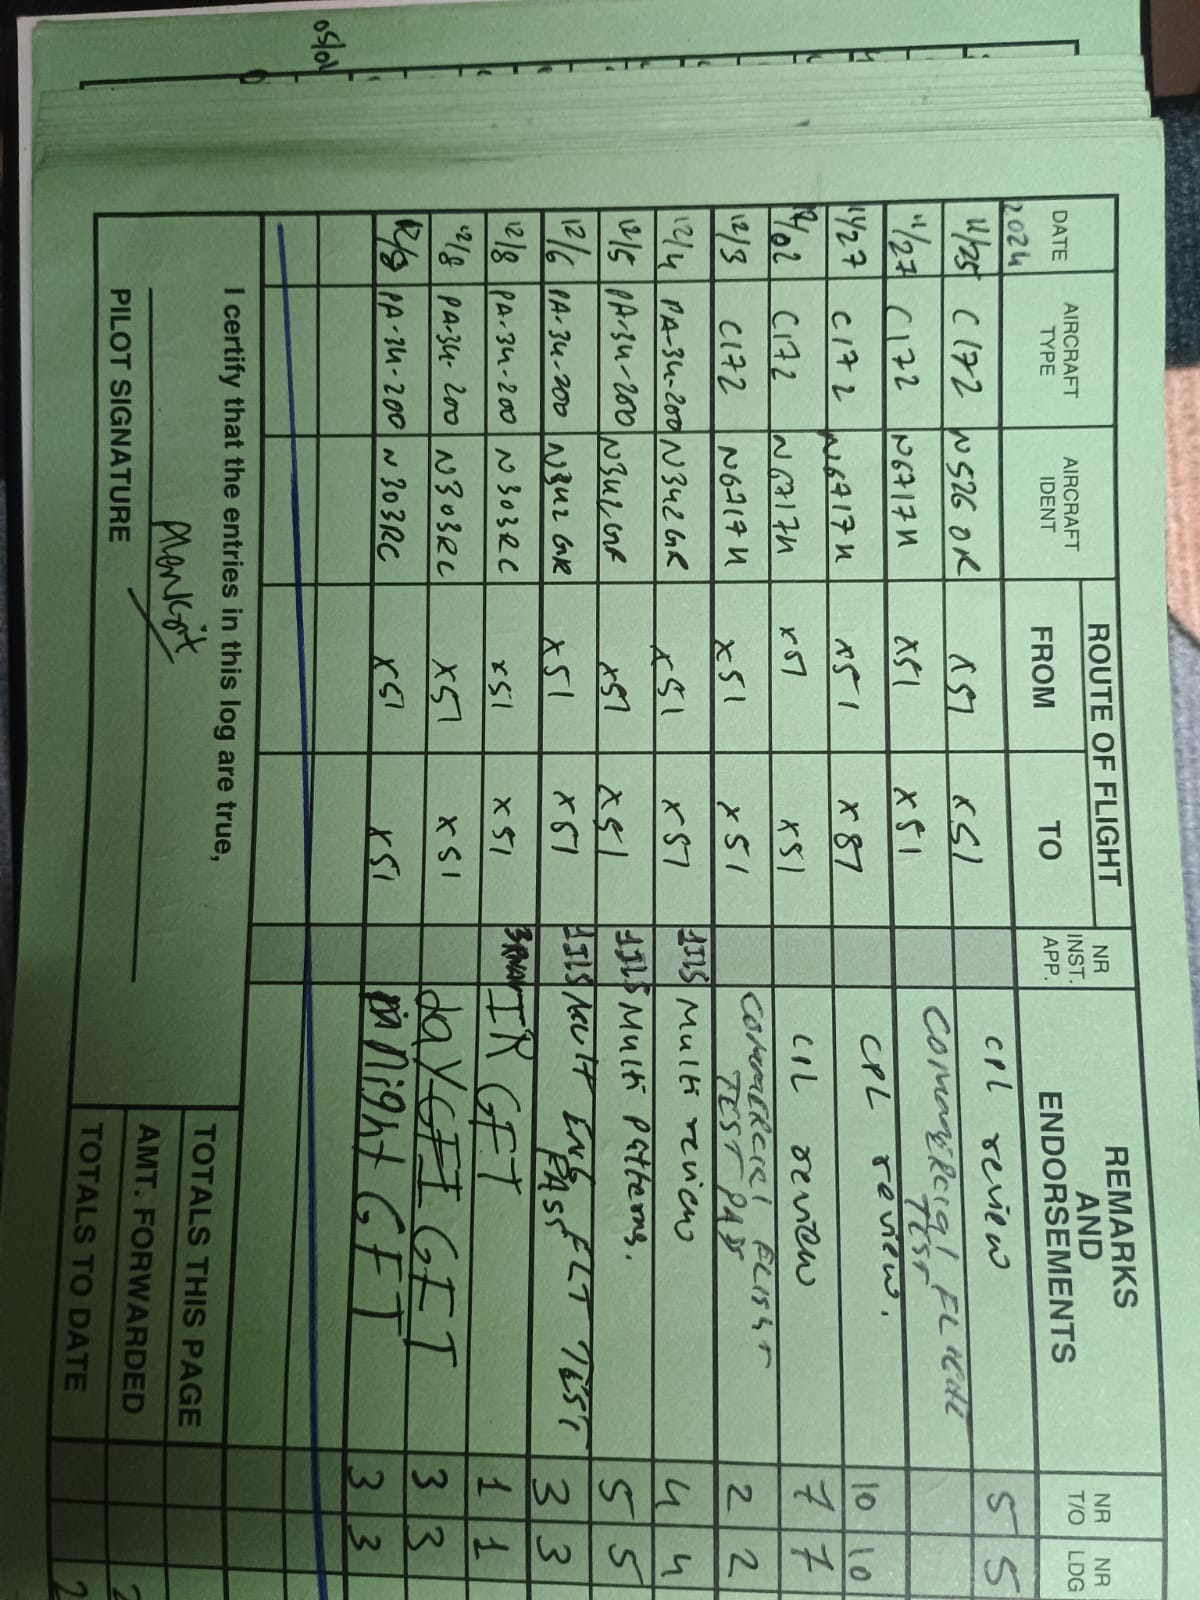 DATE AIRCRAFT TYPE AIRCRAFT IDENT ROUTE OF FLIGHT FROM TO NR INST. APP. REMARKS AND ENDORSEMENTS NR T/O NR LDG
2024
11/25 C172 N5260R X51 X51 CPL review 5 5
11/27 C172 N6717H X51 X51 COMMERCIAL TEST
11/27 C172 N6717H X51 X51 CPL review. 10 10
12/02 C172 N6717H X51 X51 review 7 7
12/3 C172 N6717H X51 X51 COMMERCIAL FLIGHT TEST PASS 2 2
12/4 PA-34-200 N342GR X51 X51 1ILS Multi review 4 4
12/5 PA-34-200 N342GR X51 X51 1ILS Multi patterns. 5 5
12/6 PA-34-200 N342GR X51 X51 1ILS Mult ENG FLT TEST PASS 3 3
12/8 PA-34-200 N303RC X51 X51 3RNAV IR GFT 1 1
12/8 PA-34-200 N303RC X51 X51 day GFT 3 3
12/8 PA-34-200 N303RC X51 X51 Night GFT 3 3
I certify that the entries in this log are true,
PILOT SIGNATURE
TOTALS THIS PAGE
AMT. FORWARDED
TOTALS TO DATE